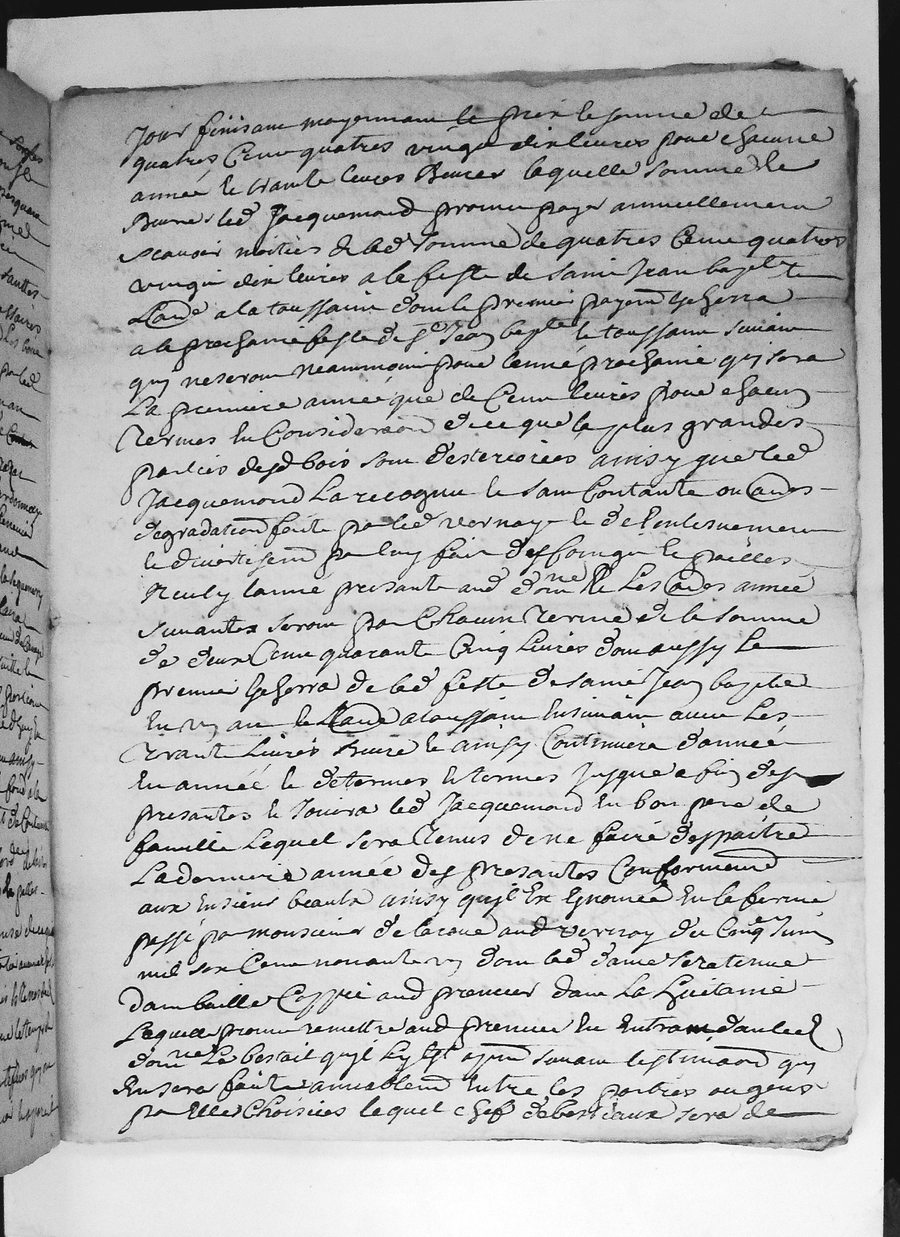 Jour finisant moyennant le prix le somme de
quatres Cent quatres vingt dix livres pour chacune
année et trante livres Beurre laquelle somme et
Beures led Jacquemard promet payer annuellement
scavoir moities de lad somme de quatres Cent quatres
vingt dix livres a la feste de saint Jean baptte et
L'autre a la toussaint dont le premier payemt Escherra
a la prochaine feste de st Jean baptte et toussaint suivant
quy ne seront neantmoint pour lanné prochaine quy sera
La premiere année que de Cent livres pour chacun
termes En Consideraon de ce que la plus grandes
parties desd bois sont desteriorées ainsy que led
Jacquemard La recognu et sont Contante ou
degradation faite par led vernoy et de Lenlesvement
et divertisemt par luy fait des foings et pailles
lanné presante aud domne Et Les années
suivantes seront par Chacun terme de la somme
de deux Cent quarante Cinq Livres dont aussy Le
premier Escherra de lad feste de saint Jean baptte
En un an et L'autre a toussaint Ensuivant avec Les
trante Livres Beure et ainsy Continuera dannée
En année et de termes En termes Jusque a fin des
presantes et Jouira led Jacquemard En bon pere de
famille Lequel sera tenus de ne faire despaitre
La derniere année des presantes Conformemt
aux Ensiens beaulx ainsy quil Ex Enoncé En la ferme
passé par monsieur de lacoue aud vernoy du Cinq Juin
mil six Cent nonante un dont lad dame sera tenue
dans baille Coppie aud preneur dans La huitaine
Lequel promet remettre aud preneur En Entrant dans led
domne Le bestait quil y Est apnt suivant lestimaon quy
En sera faite amiablemt Entre les parties ou gens
par Elle Choisies lequel chef de bestiaux sera de